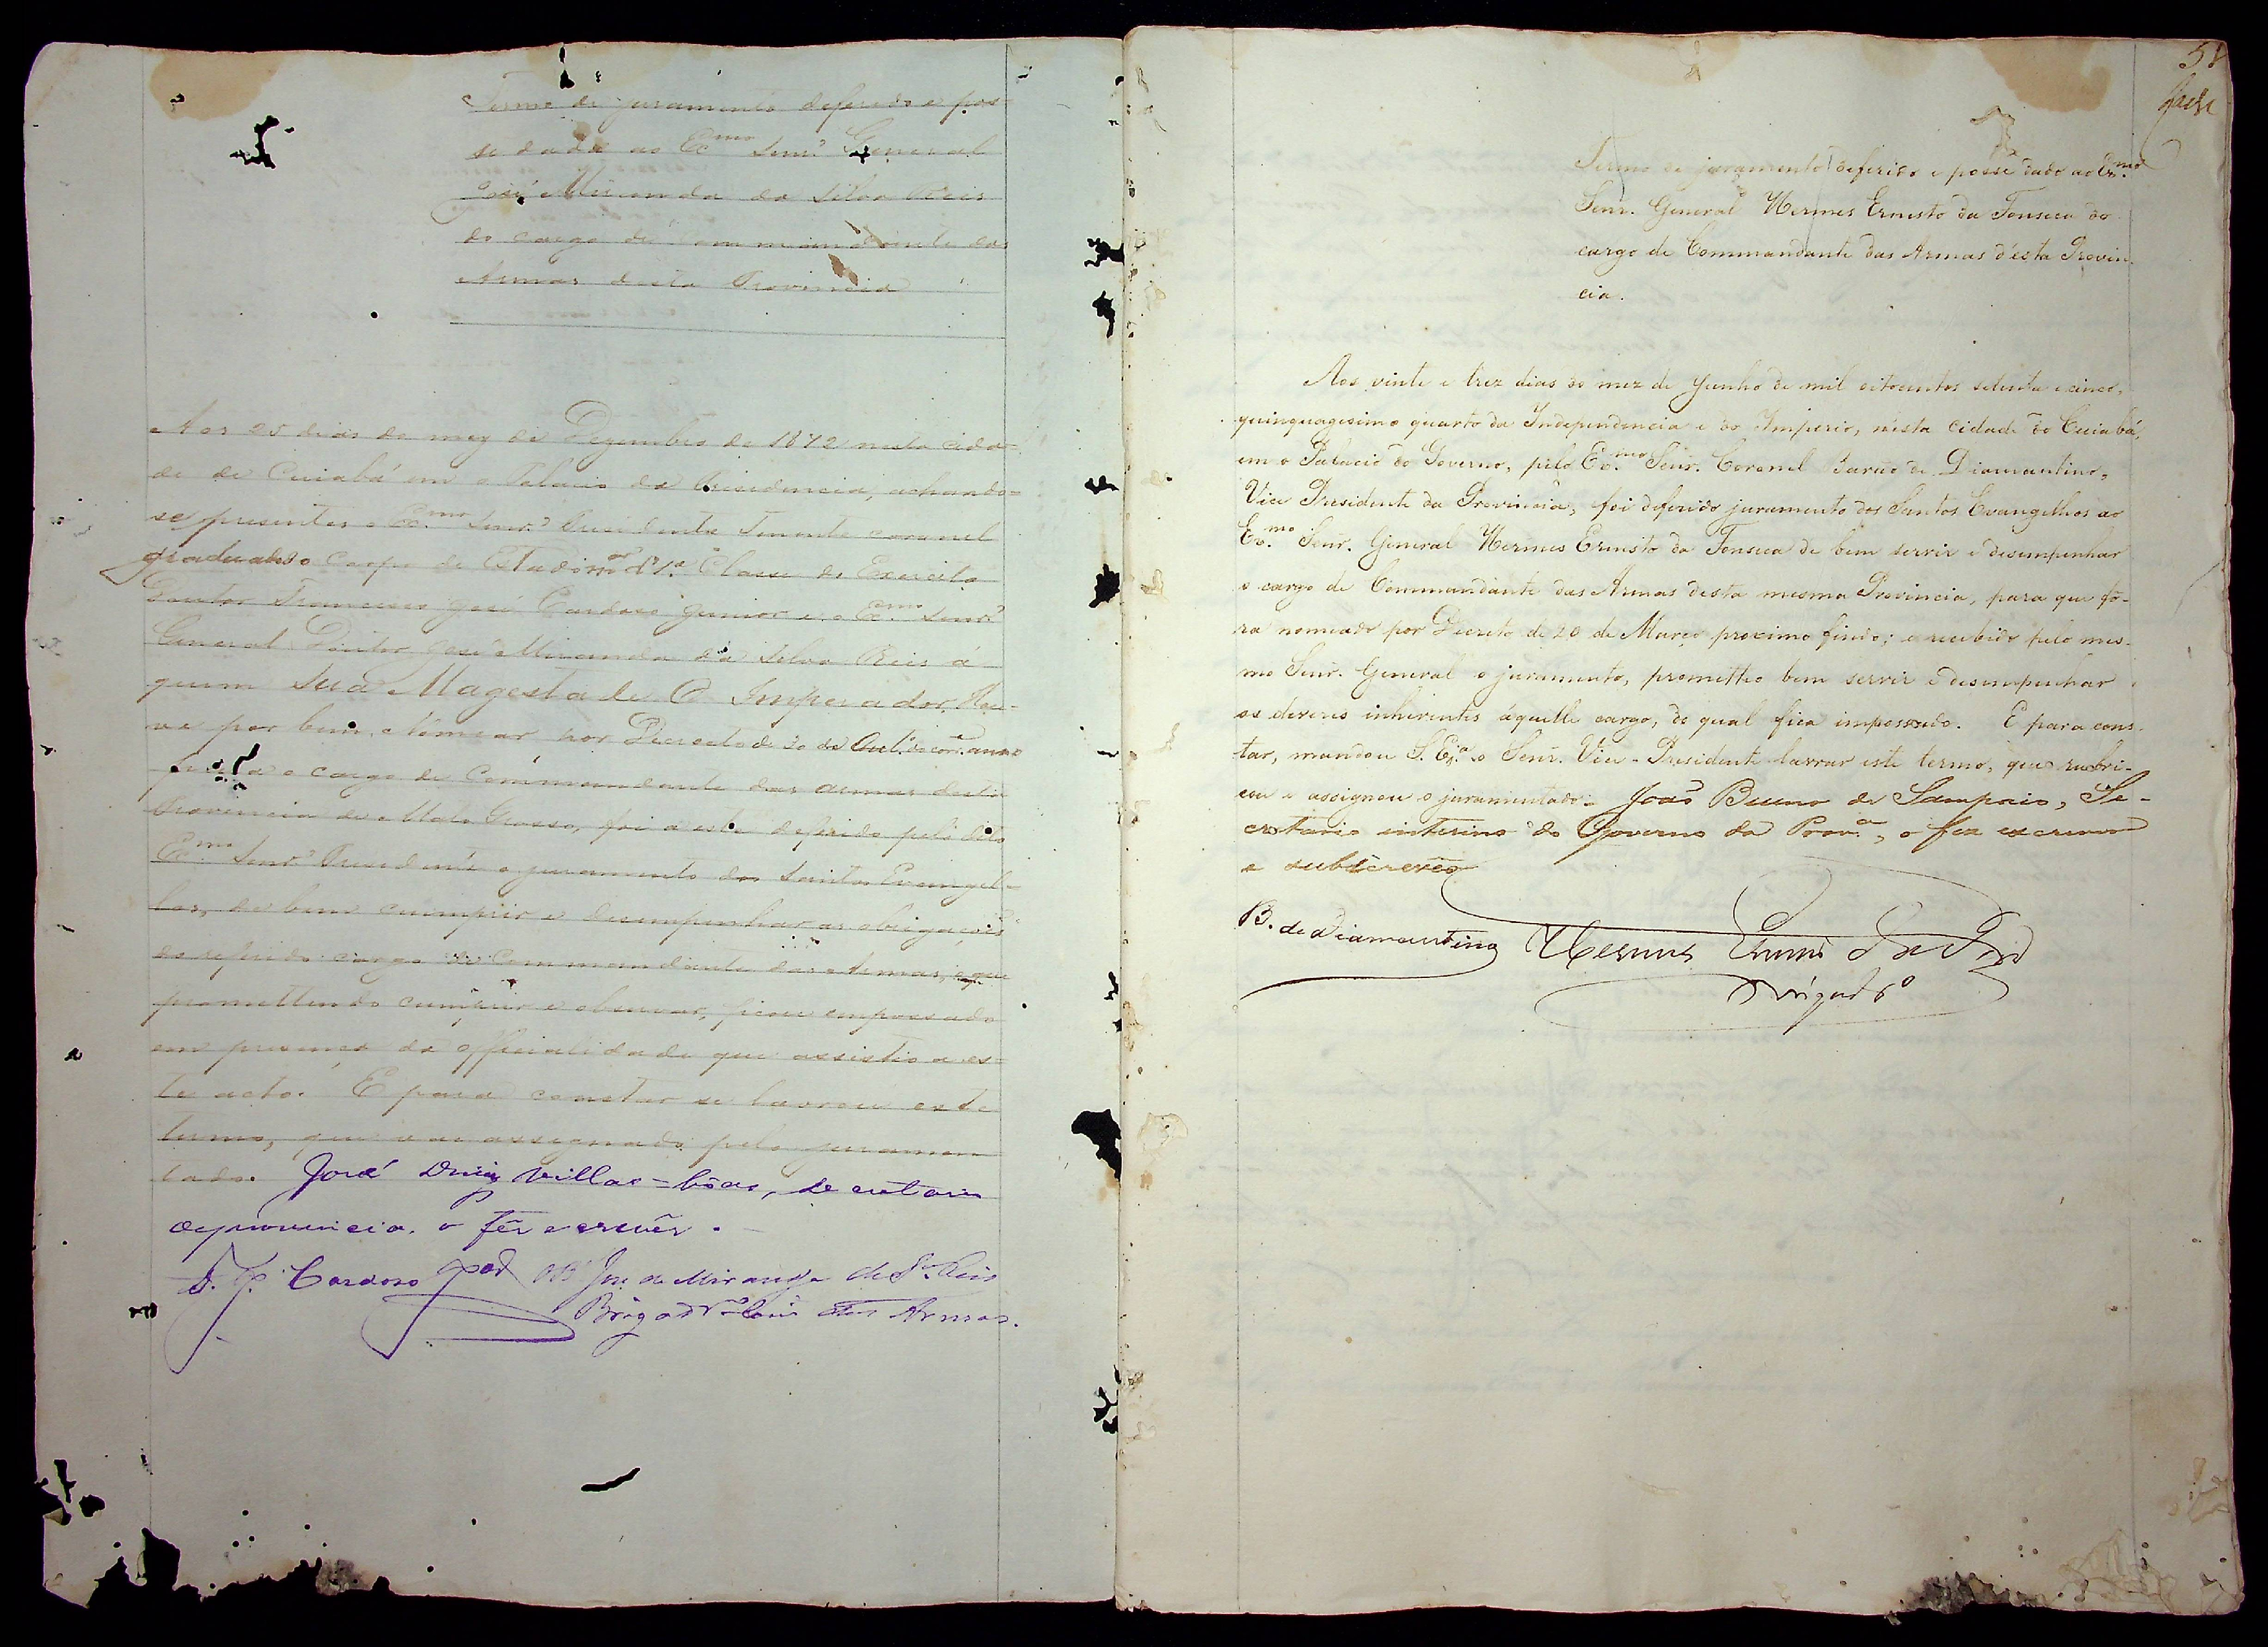 Termo de juramento deferido e pos-
se dada ao Ex.mo Senr. General
José Miranda da Silva Reis
do cargo de Commandante das
Armas desta Provincia
Aos 25 dias do mez de Dezembro de 1872 nesta cida-
de de Cuiabá em o Palacio da Presidencia, achando-
se presentes o Ex.mo Senr. Presidente Tenente coronel
graduado do Corpo de Estado maior de 1ª Classe do Exercito
Doutor Francisco José Cardoso Junior e o Ex.mo Senr.
General Doutor José Miranda da Silva Reis á
quem Sua Magestade O Imperador Hou-
ve por bem nomear por Decreto de 30 de anno
para o cargo de Commandante das armas desta
Provincia de Mato Grosso, foi a este deferido pelo dito
Ex.mo Senr. Presidente o juramento dos Santos Evangel-
hos, de bem cumprir e desempenhar as obrigações
do referido cargo de Commandante das Armas, e que
promettendo cumprir e observar, ficou empossado
em presença da officialidade que assistio a es-
te acto. E para constar se lavrou este
termo, que vai assignado pelo juramen
tado. José Diniz Villas-bôas, secretario
da provincia, o fêz escrevêr.
F. J. Cardoso Jor. José de Miranda da S.ª Reis
Brigad.ro Com. das Armas.
Termo de juramento deferido e posse dado ao Ex.mo
Senr. General Hermes Ernesto da Fonseca do
cargo de Commandante das Armas d'esta Provin-
cia.
Aos vinte e trez dias do mez de Junho de mil oitocentos setenta e cinco,
quinquagesimo quarto da Independencia e do Imperio, nésta cidade do Cuiabá,
em o Palacio do Governo, pelo Ex.mo Senr. Coronel Barão de Diamantino,
Vice Presidente da Provincia, foi deferido juramento dos Santos Evangelhos ao
Ex.mo Senr. General Hermes Ernesto da Fonseca de bem servir e desempenhar
o cargo de Commandante das Armas desta mesma Provincia, para que fô-
ra nomeado por Decreto de 20 de Março proximo findo; e recebido pelo mes-
mo Senr. General o juramento, prometteo bem servir e desempenhar
os deveres inherentes áquelle cargo, do qual fica impossado. E para cons-
tar, mandou S. Ex.ª o Senr. Vice-Presidente lavrar este termo, que rubri-
cou e assignou o juramentado. João Bueno de Sampaio, Se-
cretario interino do Governo da Prov.ª, o fez escrever
e subscreveo
B. de Diamantino Hermes Ernesto da Fon.ca
Brigad.ro